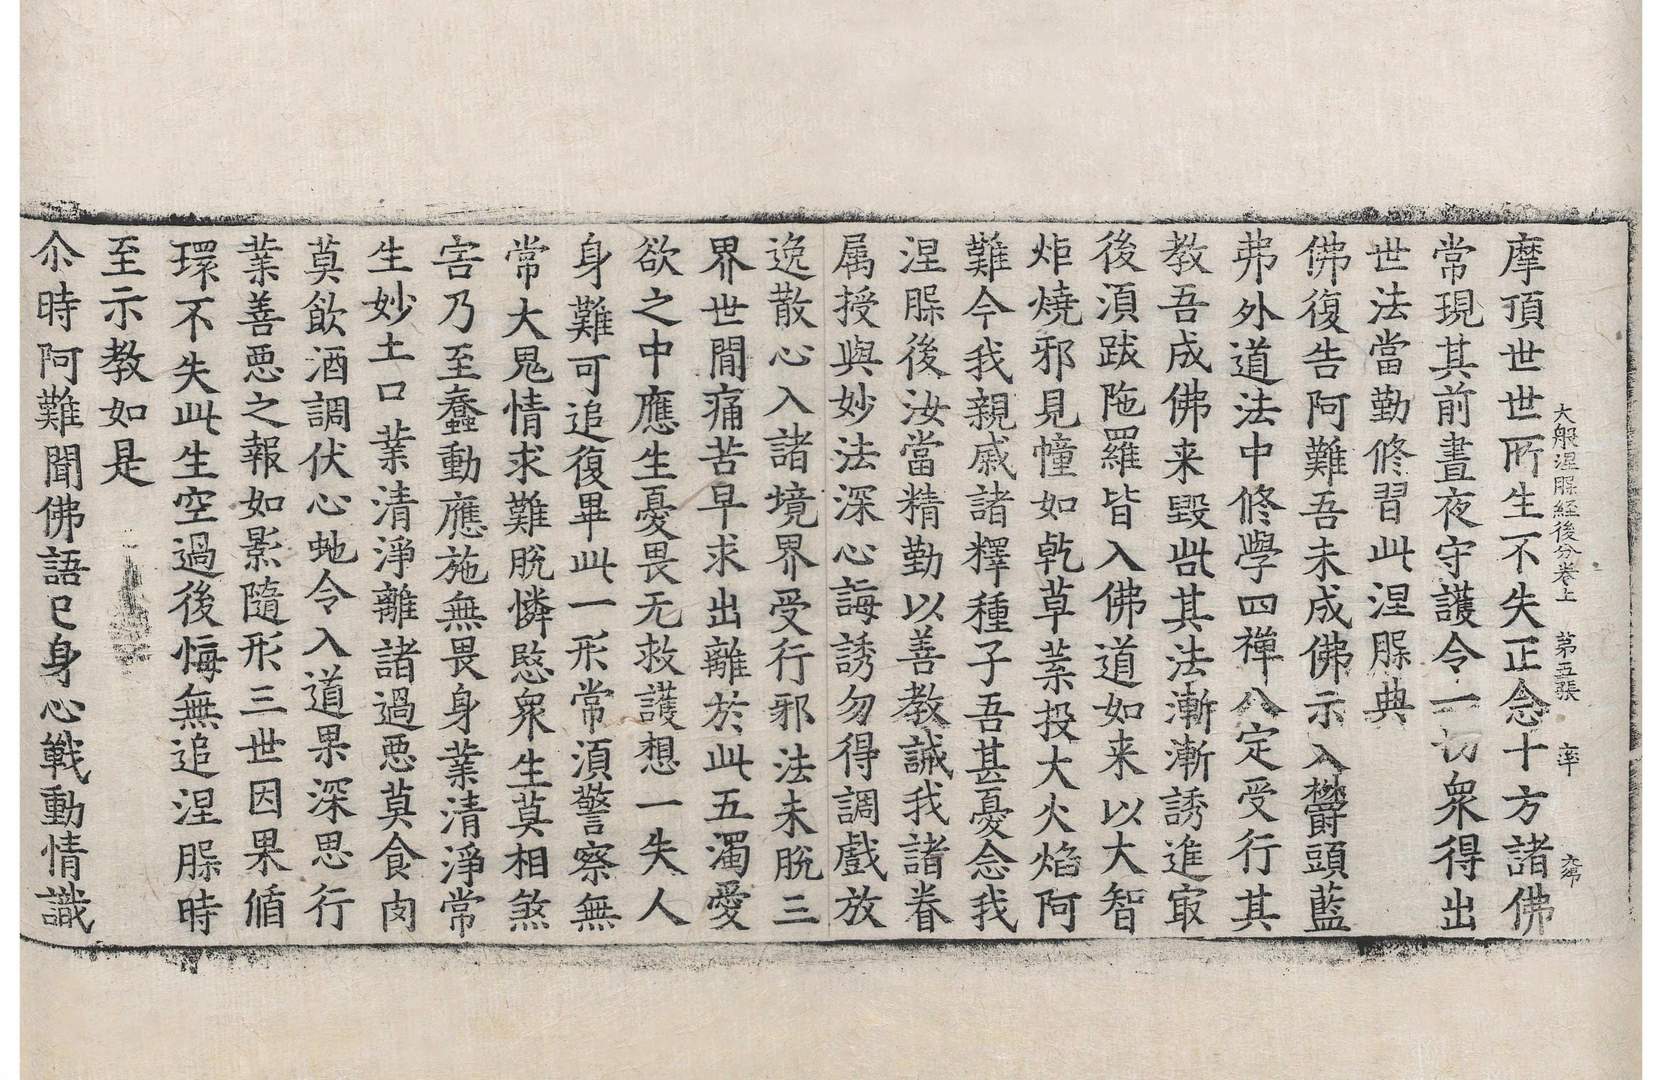 大般涅脲經後分卷上　第五張　率
摩頂世世所生不失正念十方諸佛
常現其前晝夜守護令一切衆得出
世法當勤修習此涅脲典
佛復告阿難吾未成佛示入欝頭藍
弗外道法中修學四禪八定受行其
教吾成佛来毀呰其法漸漸誘進㝡
後湏跋陁羅皆入佛道如来以大智
炬燒邪見幢如乾草葉投大火焰阿
難今我親戚諸釋種子吾甚憂念我
涅脲後汝當精勤以善教誡我諸眷
属授與妙法深心誨誘勿得調戲放
逸散心入諸境界受行邪法未脫三
界世閒痛苦早求出離於此五濁愛
欲之中應生憂畏无救護想一失人
身難可追復畢此一形常湏警察無
常大鬼情求難脫憐愍衆生莫相煞
害乃至蠢動應施無畏身業清淨常
生妙土口業清淨離諸過惡莫食肉
莫飲酒調伏心虵令入道果深思行
業善惡之報如影隨形三世因果循
環不失此生空過後悔無追涅脲時
至示教如是
尒時阿難聞佛語已身心戰動情識